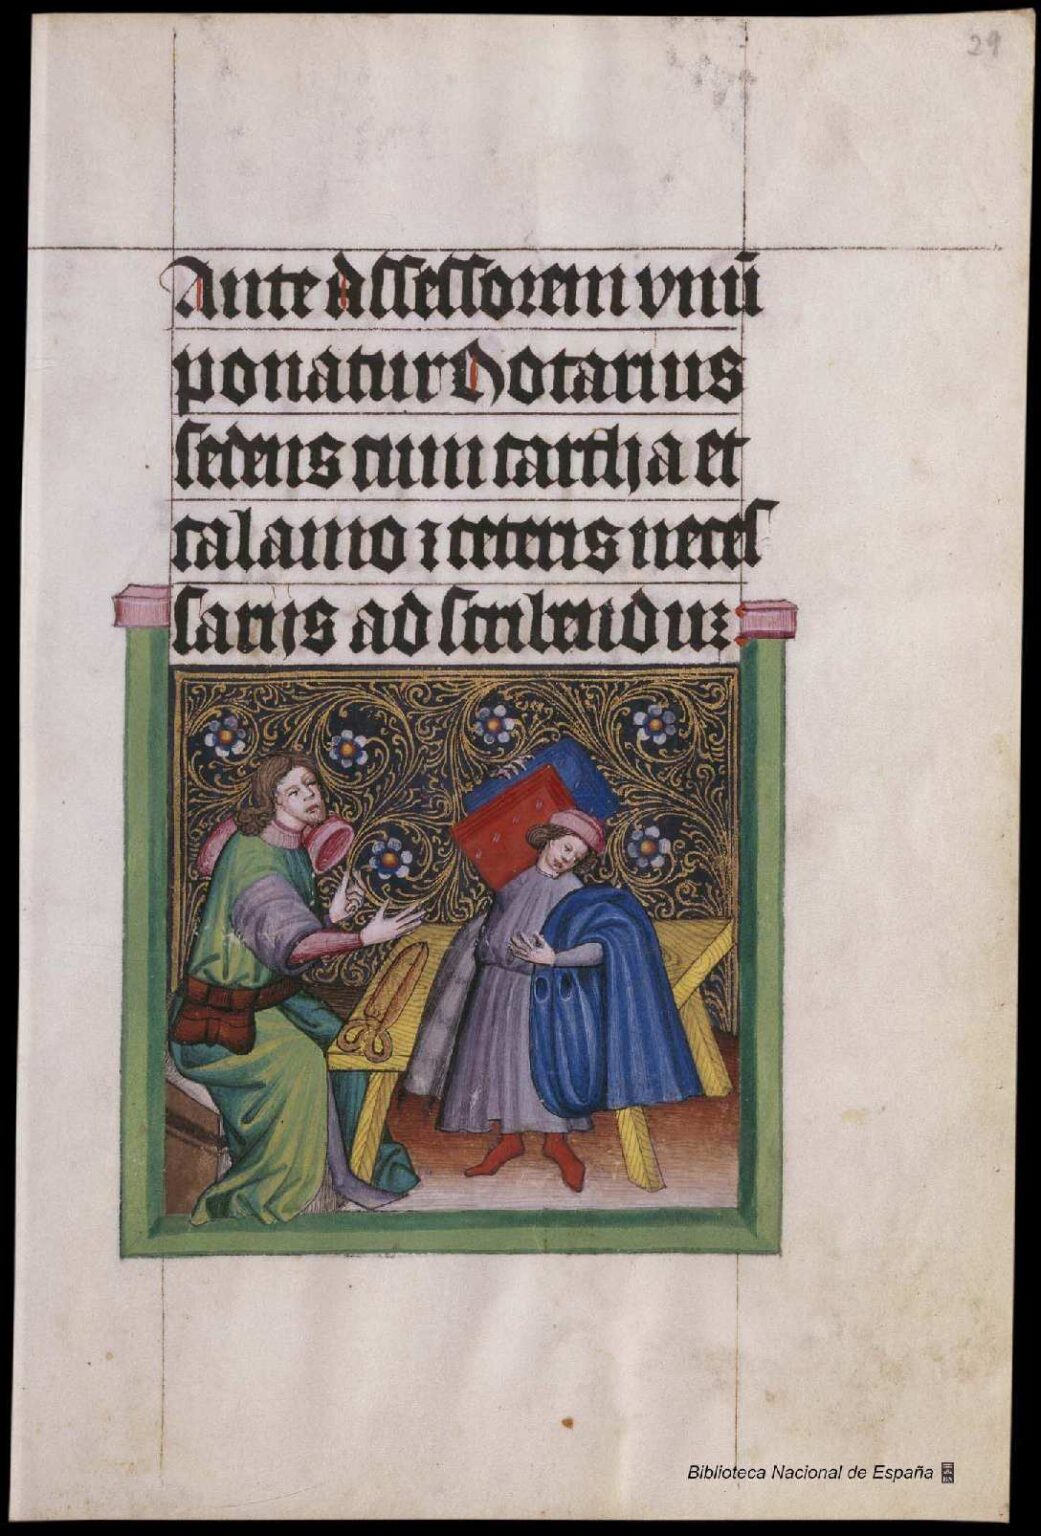 29
Ante Assessorem vnū
ponatur Notarius
sedens cum cartha et
calamo ⁊ ceteris neces
sarijs ad scribenduꝫ
Biblioteca Nacional de España